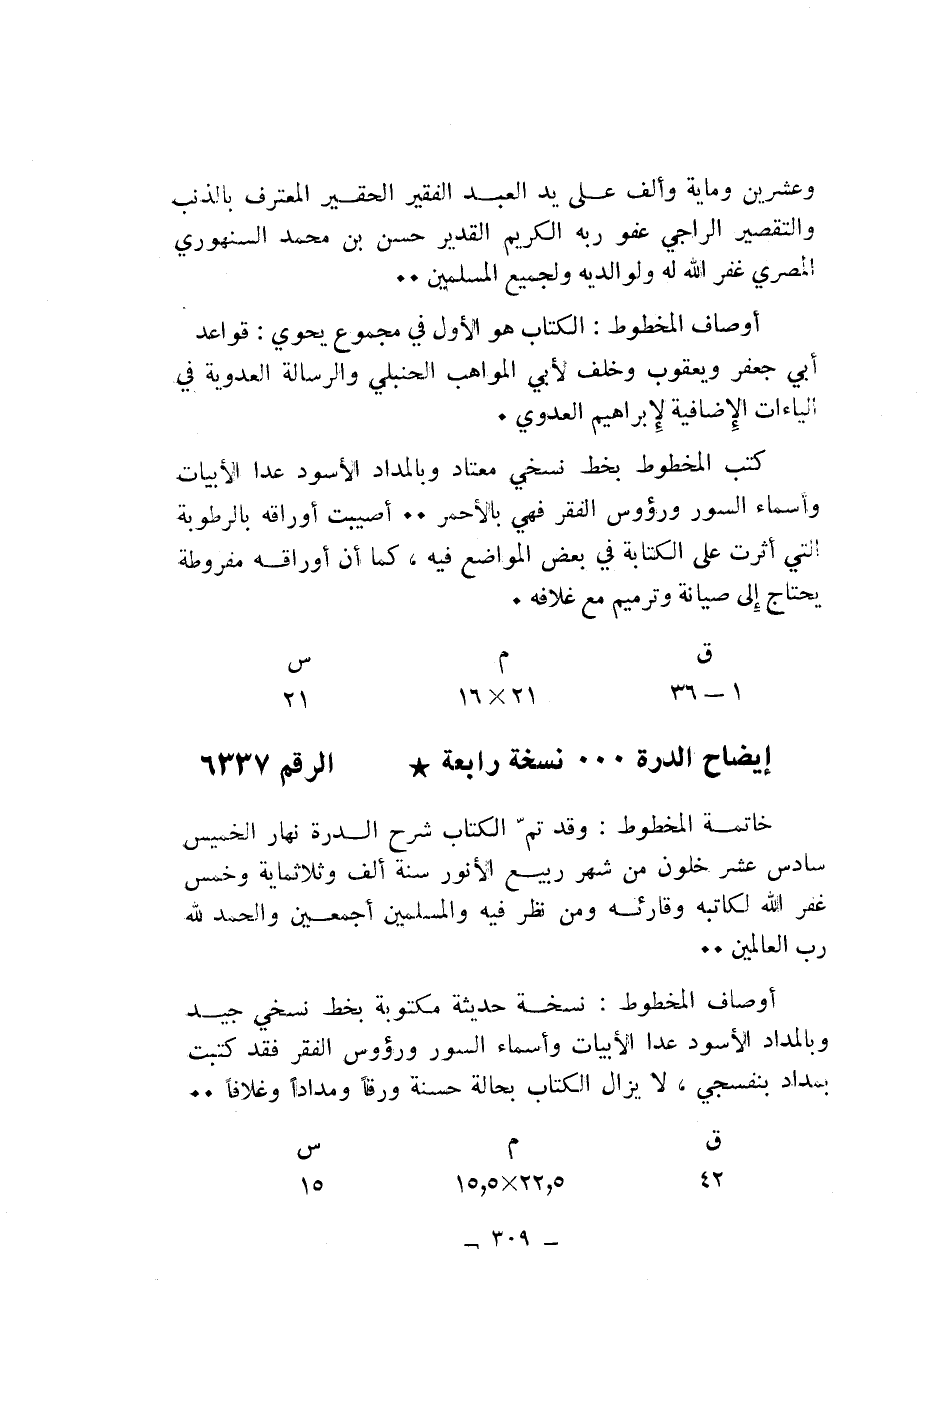 وعشرين وماية وألف على يد العبد الفقير الحقير المعترف بالذنب
والتقصير الراجي عفو ربه الكريم القدير حسن بن محمد السنهوري
المصري غفر الله له ولوالديه ولجميع المسلمين ٠٠
أوصاف المخطوط : الكتاب هو الأول في مجموع يحوي : قواعد
أبي جعفر ويعقوب وخلف لأبي المواهب الحنبلي والرسالة العدوية في
الياءات الإضافية لإبراهيم العدوي ٠
كتب المخطوط بخط نسخي معتاد وبالمداد الأسود عدا الأبيات
وأسماء السور ورؤوس الفقر فهي بالأحمر ٠٠ أصيبت أوراقه بالرطوبة
التي أثرت على الكتابة في بعض المواضع فيه ، كما أن أوراقه مفروطة
يحتاج إلى صيانة وترميم مع غلافه ٠
ق م س
١ – ٣٦ ٢١×١٦ ٢١
إيضاح الدرة ٠٠٠ نسخة رابعة ★ الرقم ٦٣٣٧
خاتمة المخطوط : وقد تمّ الكتاب شرح الدرة نهار الخميس
سادس عشر خلون من شهر ربيع الأنور سنة ألف وثلاثماية وخمس
غفر الله لكاتبه وقارئه ومن نظر فيه والمسلمين أجمعين والحمد لله
رب العالمين ٠٠
أوصاف المخطوط : نسخة حديثة مكتوبة بخط نسخي جيد
وبالمداد الأسود عدا الأبيات وأسماء السور ورؤوس الفقر فقد كتبت
بمداد بنفسجي ، لا يزال الكتاب بحالة حسنة ورقاً ومداداً وغلافاً ٠٠
ق م س
٤٢ ٢٢,٥×١٥,٥ ١٥
– ٣٠٩ –